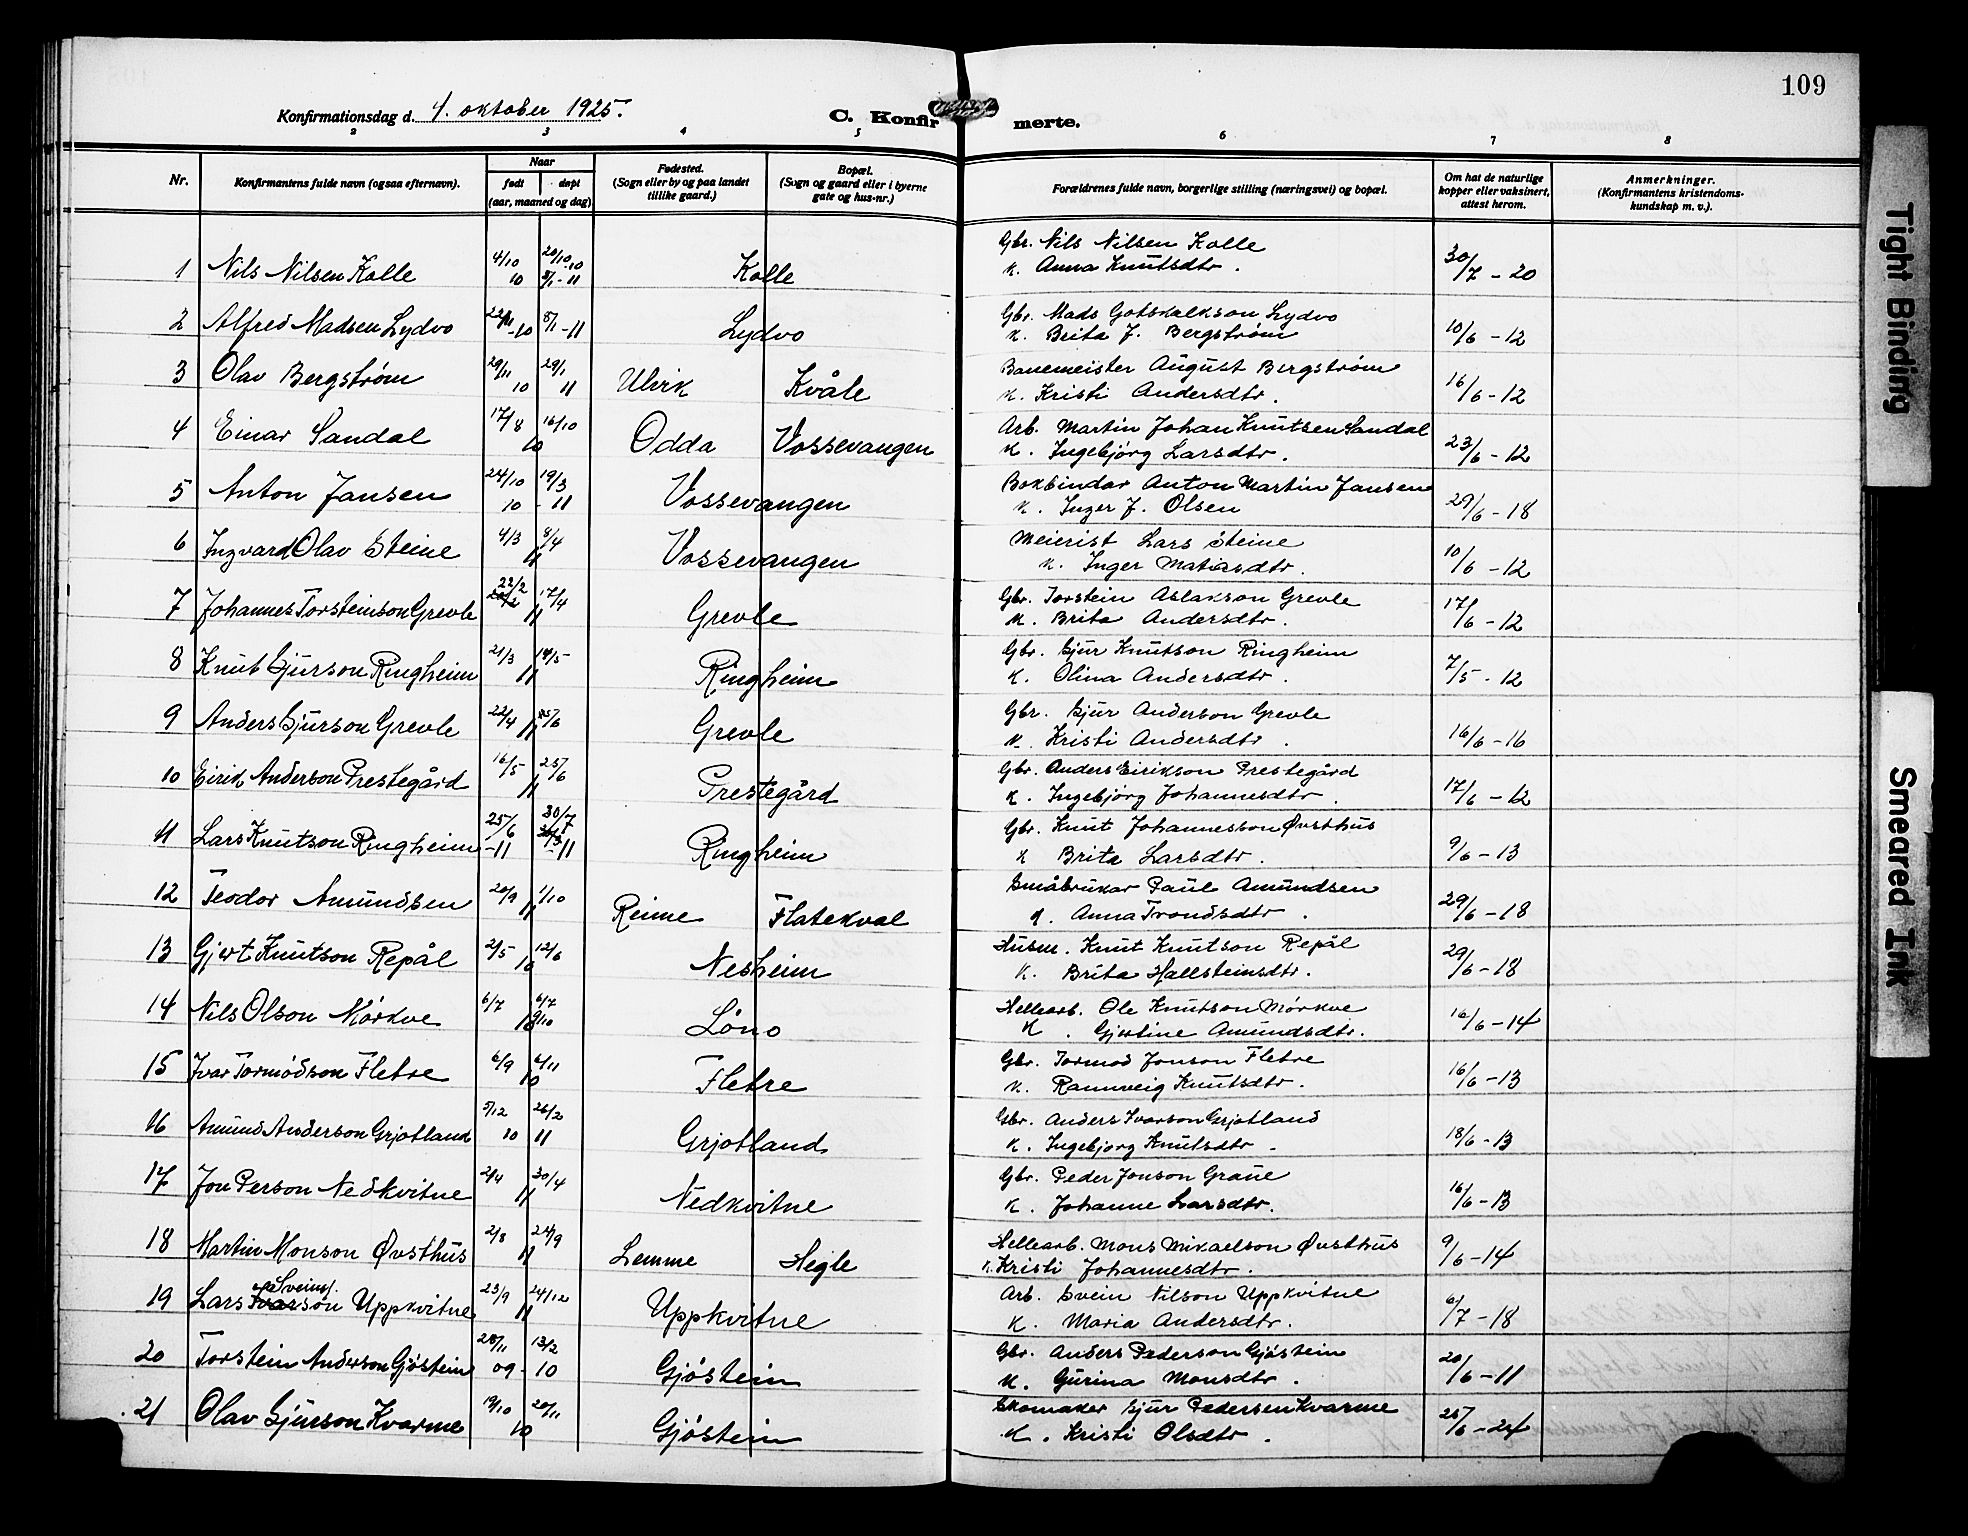 109
Konfirmationsdag d. 4. oktober 1925.
C. Konfirmerte.
2 3 4 5 6 7 8
Nr.
Konfirmantens fulde navn (ogsaa efternavn).
Naar
født døpt
(aar, maaned og dag)
Fødested.
(Sogn eller by og paa landet
tillike gaard.)
Bopæl.
(Sogn og gaard eller i byerne
gate og hus-nr.)
Forældrenes fulde navn, borgerlige stilling (næringsvei) og bopæl.
Om hat de naturlige
kopper eller vaksinert,
attest herom.
Anmerkninger.
(Konfirmantens kristendoms-
kundskap m. v.).
Gbr. Nils Nilsen Kolle
1 Nils Nilsen Kolle 4/10 10 20/10-10 8/1-11 Kolle K. Anna Knutsdtr. 30/7-20
Gbr. Mads Gotskalkson Lydvo
2 Alfred Madsen Lydvo 22/11-10 8/1-11 Lydvo K. Brita J. Bergstrøm 10/6-12
Banemeister August Bergstrøm
3 Olav Bergstrøm 29/11 10 29/1 11 Ulvik Kvåle K. Kristi Andersdtr. 16/6-12
Arb. Martin Johan Knutsen Sandal
4 Einar Sandal 17/8 16/10 10 Odda Vossevangen K. Ingebjörg Larsdtr. 23/6-12
Bokbindar Anton Martin Jansen
5 Anton Jansen 24/10 10 19/3-11 Vossevangen K. Inger J. Olsen 29/6-18
Meierist Lars Steine
6 Ingvard Olav Steine 4/3 8/4 11 Vossevangen K. Inger Matasdtr. 10/6-12
Gbr. Torstein Aslakson Grevle
7 Johannes Torsteinson Grevle 22/2 17/4 11 Grevle K. Brita Andersdtr. 17/6-12
Gbr. Gjur Knutson Ringheim
8 Knut Gjurson Ringheim 21/3 14/5 11 Ringheim K. Olina Andersdtr. 7/5-12
Gbr. Gjur Anderson Grevle
9 Anders Gjurson Grevle 22/4 /6 11 Grevle K. Kristi Andersdtr. 16/6-16
Gbr. Anders Eirikson Prestegård
10 Eirik Anderson Prestegård 16/5 25/6 11 Prestegård K. Ingebjörg Johannesdtr. 17/6-12
Gbr. Knut Johannesson Øvsthus
11 Lars Knutson Ringheim 25/6-11 30/7-11 Ringheim K Brita Larsdtr. 9/6-13
Småbrukar Paul Amundsen
12 Teodor Amundsen 20/9 1/10 11 Reime Flatekval K. Anna Trondsdtr. 29/6-18
Husm. Knut Knutson Repål
13 Gjert Knutson Repål 2/5 12/6 10 Nesheim K. Brita Hallsteinsdtr. 29/6-18
Hellearb. Ole Knutson Mörkve
14 Nils Olson Mörkve 6/7 6/7 9/10 10 Löno K. Gjertine Amundsdtr. 16/6-14
Gbr. Tormod Jonson Fletre
15 Ivar Tormodson Fletre 6/9 6/11 10 Fletre K. Rannveig Knutsdtr. 16/6-13
Gbr. Anders Ivarson Grjotland
16 Amund Anderson Grjotland 5/12 10 26/2 11 Grjotland K. Ingebjorg Knutsdtr. 18/6-13
Gbr. Peder Jonson Graue
17 Jon Person Nedkvitne 2/4 30/4 11 Nedkvitne K. Johanne Larsdtr. 16/6-13
Hellearb. Mons Mikaelson Øvsthus
18 Martin Monson Øvsthus 2/8 24/9 11 Lemme Hegle K. Kristi Johannesdtr. 9/6-14
Sveins/
Arb. Svein Nilson Uppkvitne
19 Lars Ivarson Uppkvitne 23/9 24/12 11 Uppkvitne K. Maria Andersdtr. 6/7-18
Gbr. Anders Pederson Gjöstein
20 Torstein Anderson Gjöstein 28/11 09 - 13/2 10 Gjöstein K. Gurina Monsdtr. 20/6-11
Skomaker Gjur Pedersen Kvarme
21 Olav Gjurson Kvarme 19/10 20/11 10 Gjöstein K. Kristi Olsdtr. 25/6-24
Tight Binding
Smeared Ink